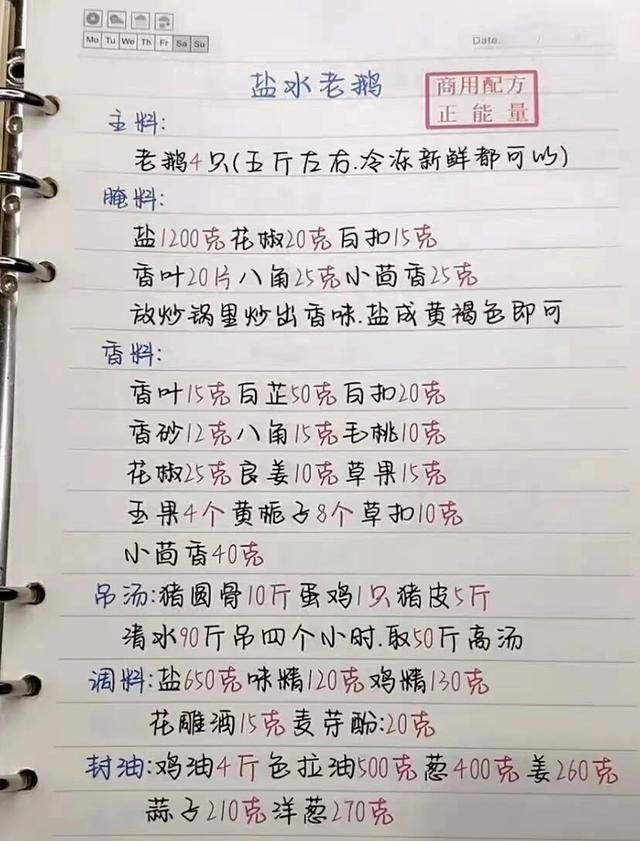 Mo Tu We Th Fr Sa Su
Date:
盐水老鹅
商用配方
正能量
主料:
老鹅4只(五斤左右.冷冻新鲜都可以)
腌料:
盐1200克花椒20克白扣15克
香叶20片八角25克小茴香25克
放炒锅里炒出香味.盐成黄褐色即可
香料:
香叶15克白芷50克白扣20克
香砂12克八角15克毛桃10克
花椒25克良姜10克草果15克
玉果4个黄栀子8个草扣10克
小茴香40克
吊汤:猪圆骨10斤蛋鸡1只猪皮5斤
清水90斤吊四个小时.取50斤高汤
调料:盐650克味精120克鸡精130克
花雕酒15克麦芽酚:20克
封油:鸡油4斤色拉油500克葱400克姜260克
蒜子210克洋葱270克